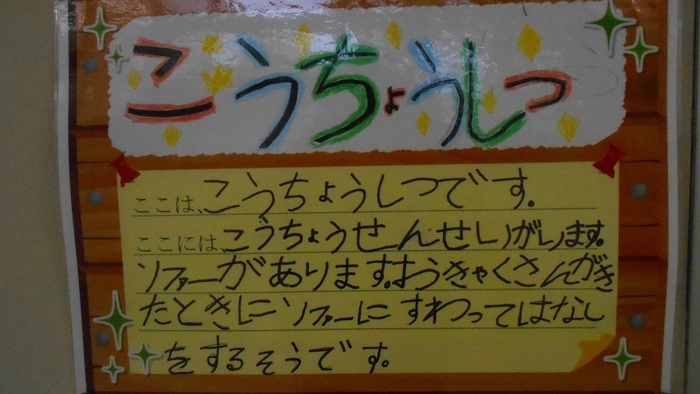 こうちょうしつ
ここは、こうちょうしつです。
ここには、こうちょうせんせいがいます。
ソファーがあります。おうきゃくさんがき
たときにソファーにすわってはなし
をするそうです。